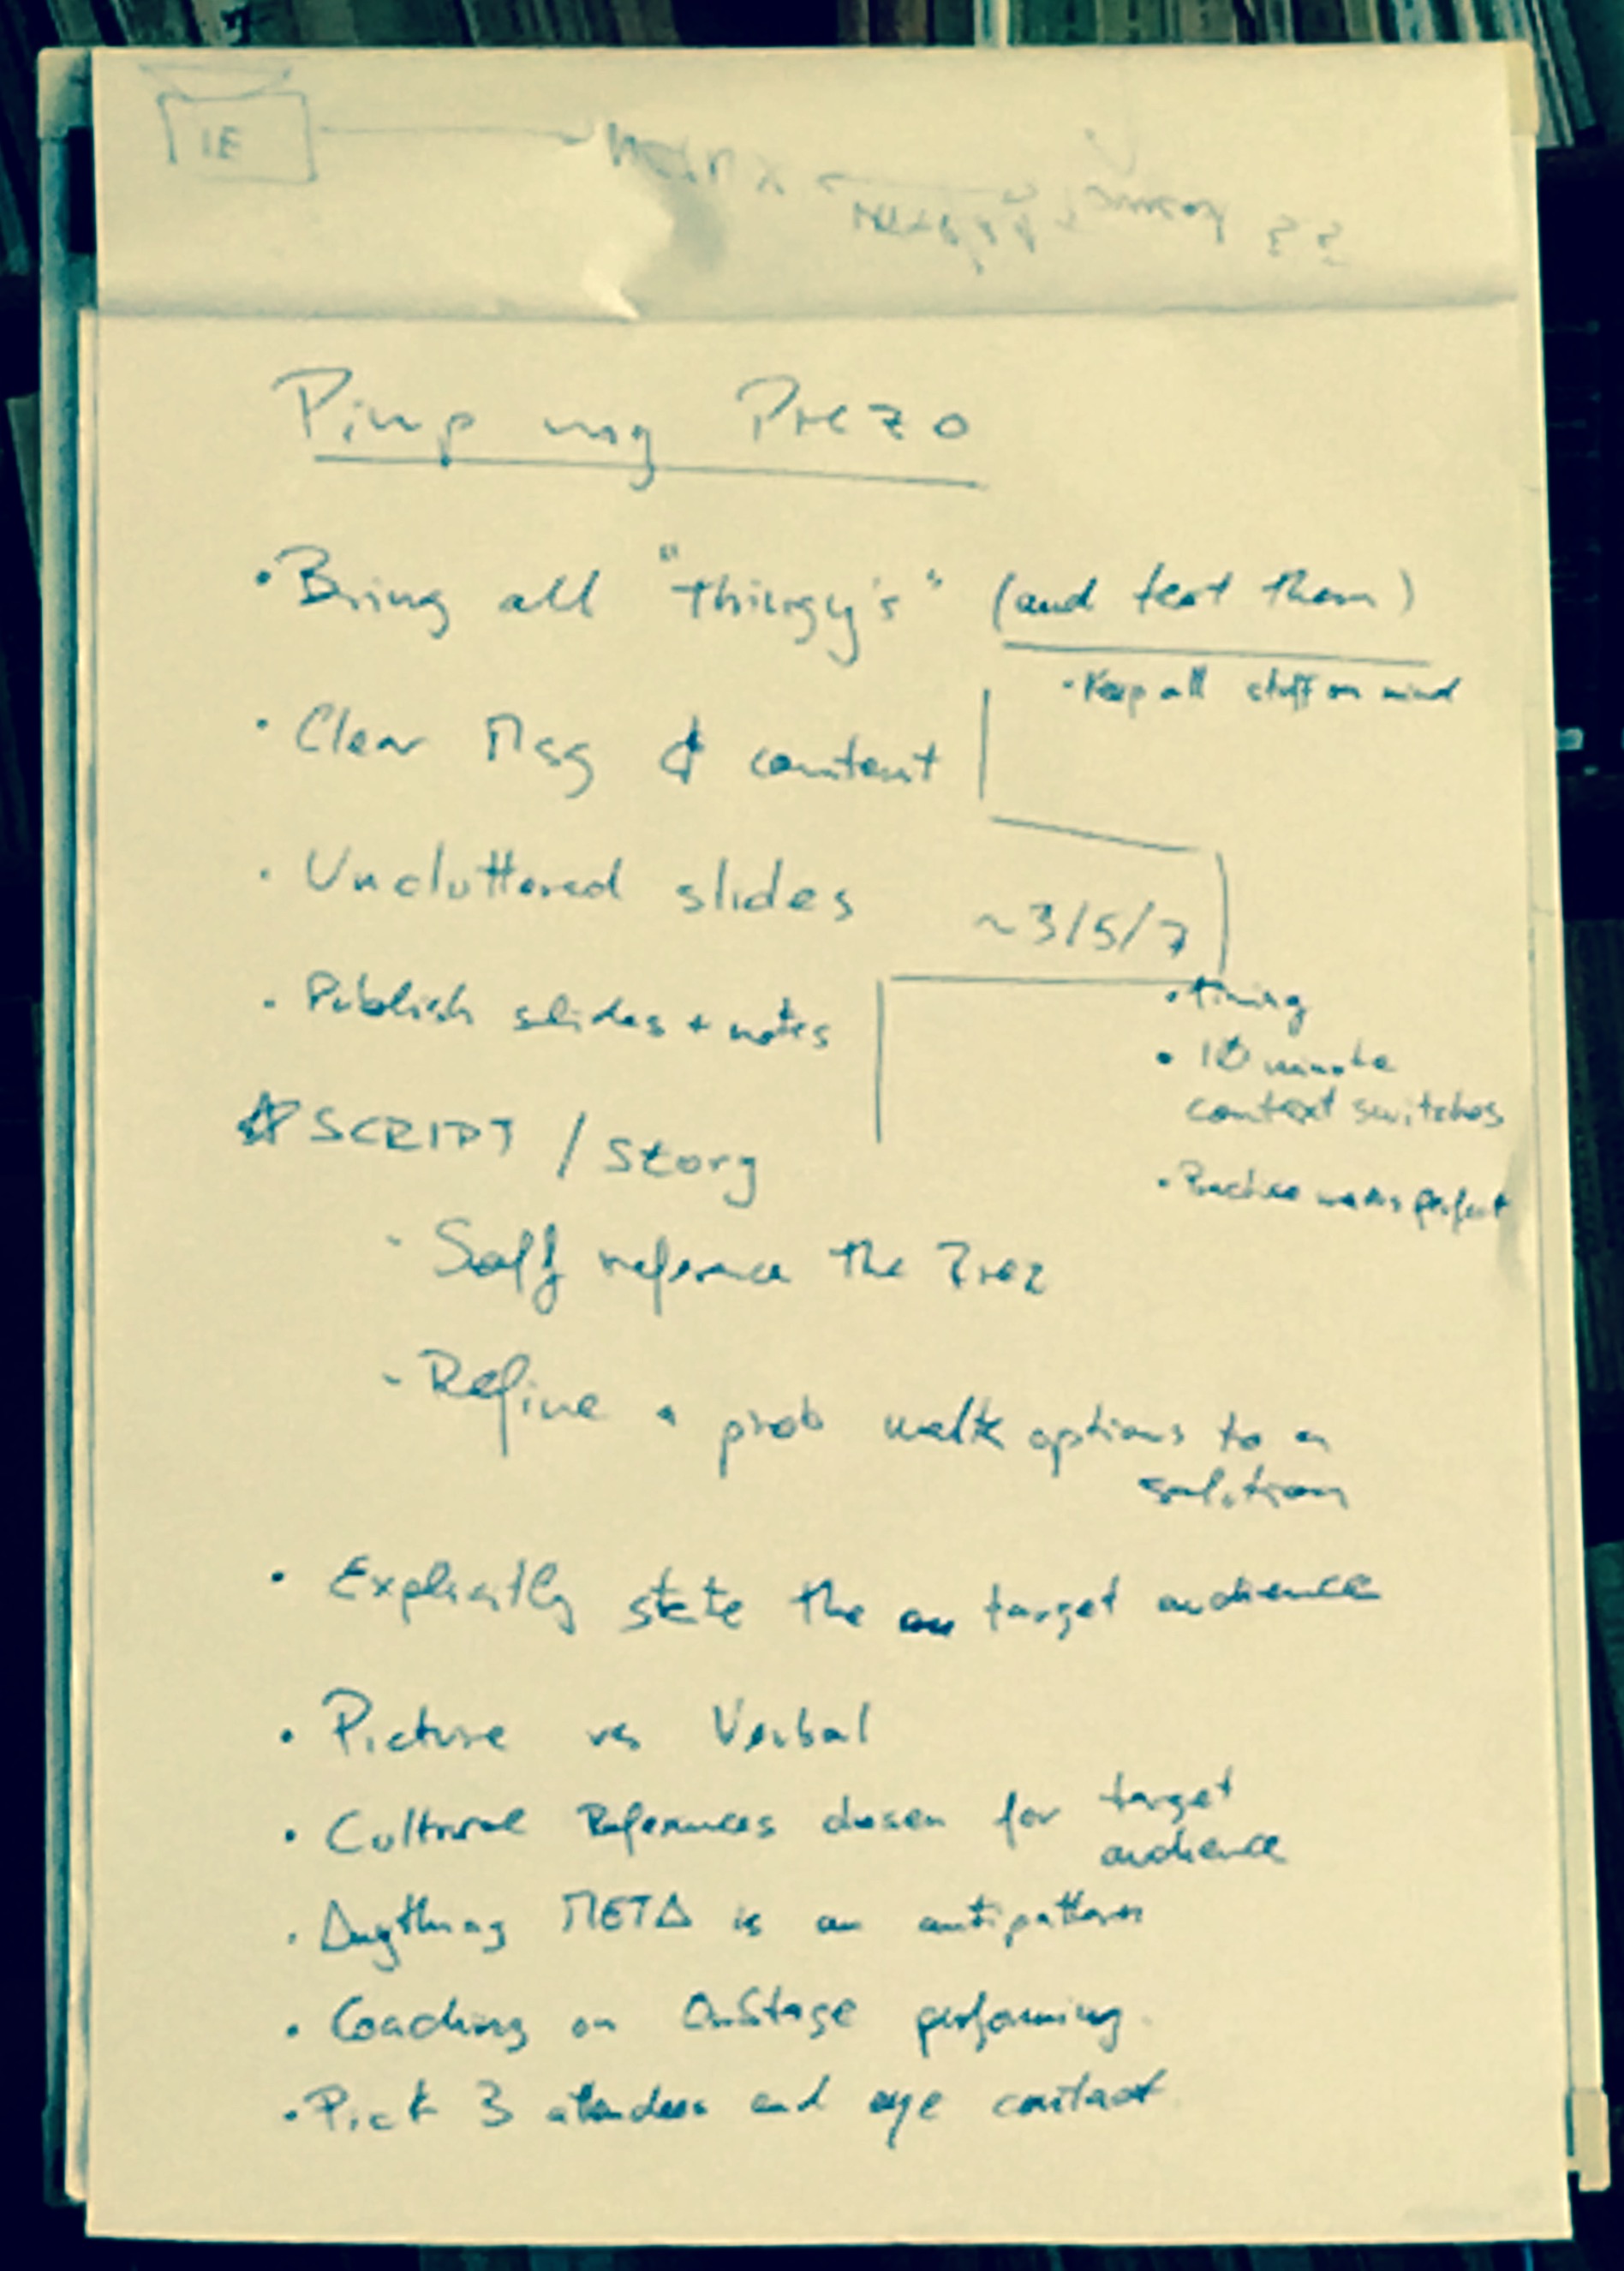 IE
??
Pimp my Prezo
• Bring all "thingy's" (and test them)
• Keep all stuff on mind
• Clear Msg & content
• Uncluttered slides
~3/5/7
• Publish slides + notes
• timing
• 10 minute
context switches
• Practice makes perfect
☆ SCRIPT / Story
- Self reference the Prez
- Refine a prob walk options to a
solution
• Explicitly state the target audience
• Picture vs Verbal
• Cultural References chosen for target
audience
• Anything META is an antipattern
• Coaching on OnStage performing.
• Pick 3 attendees and eye contact.